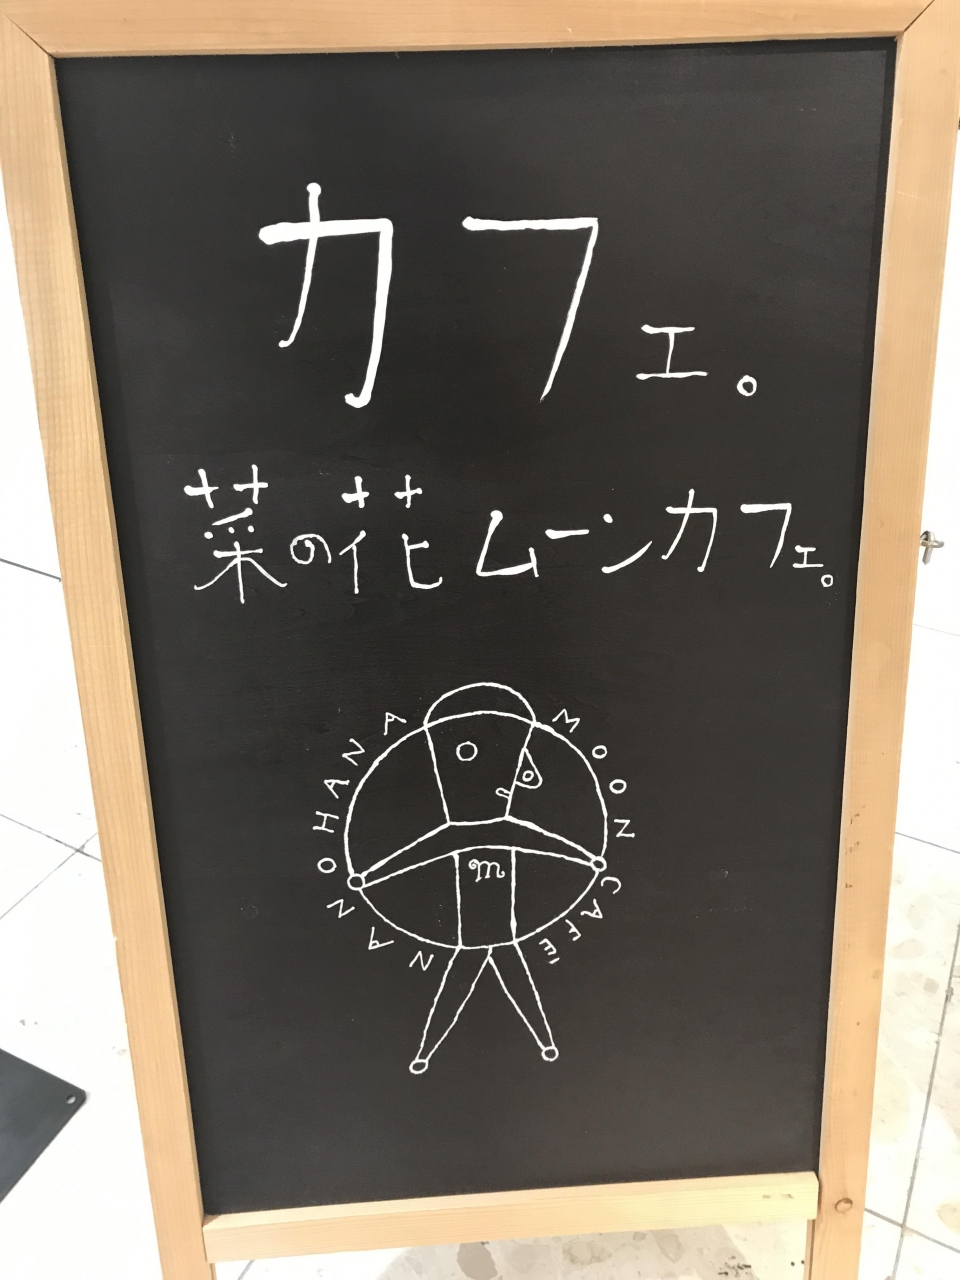 カフェ。
菜の花ムーンカフェ。
NANOHANA MOON CAFÉ
m